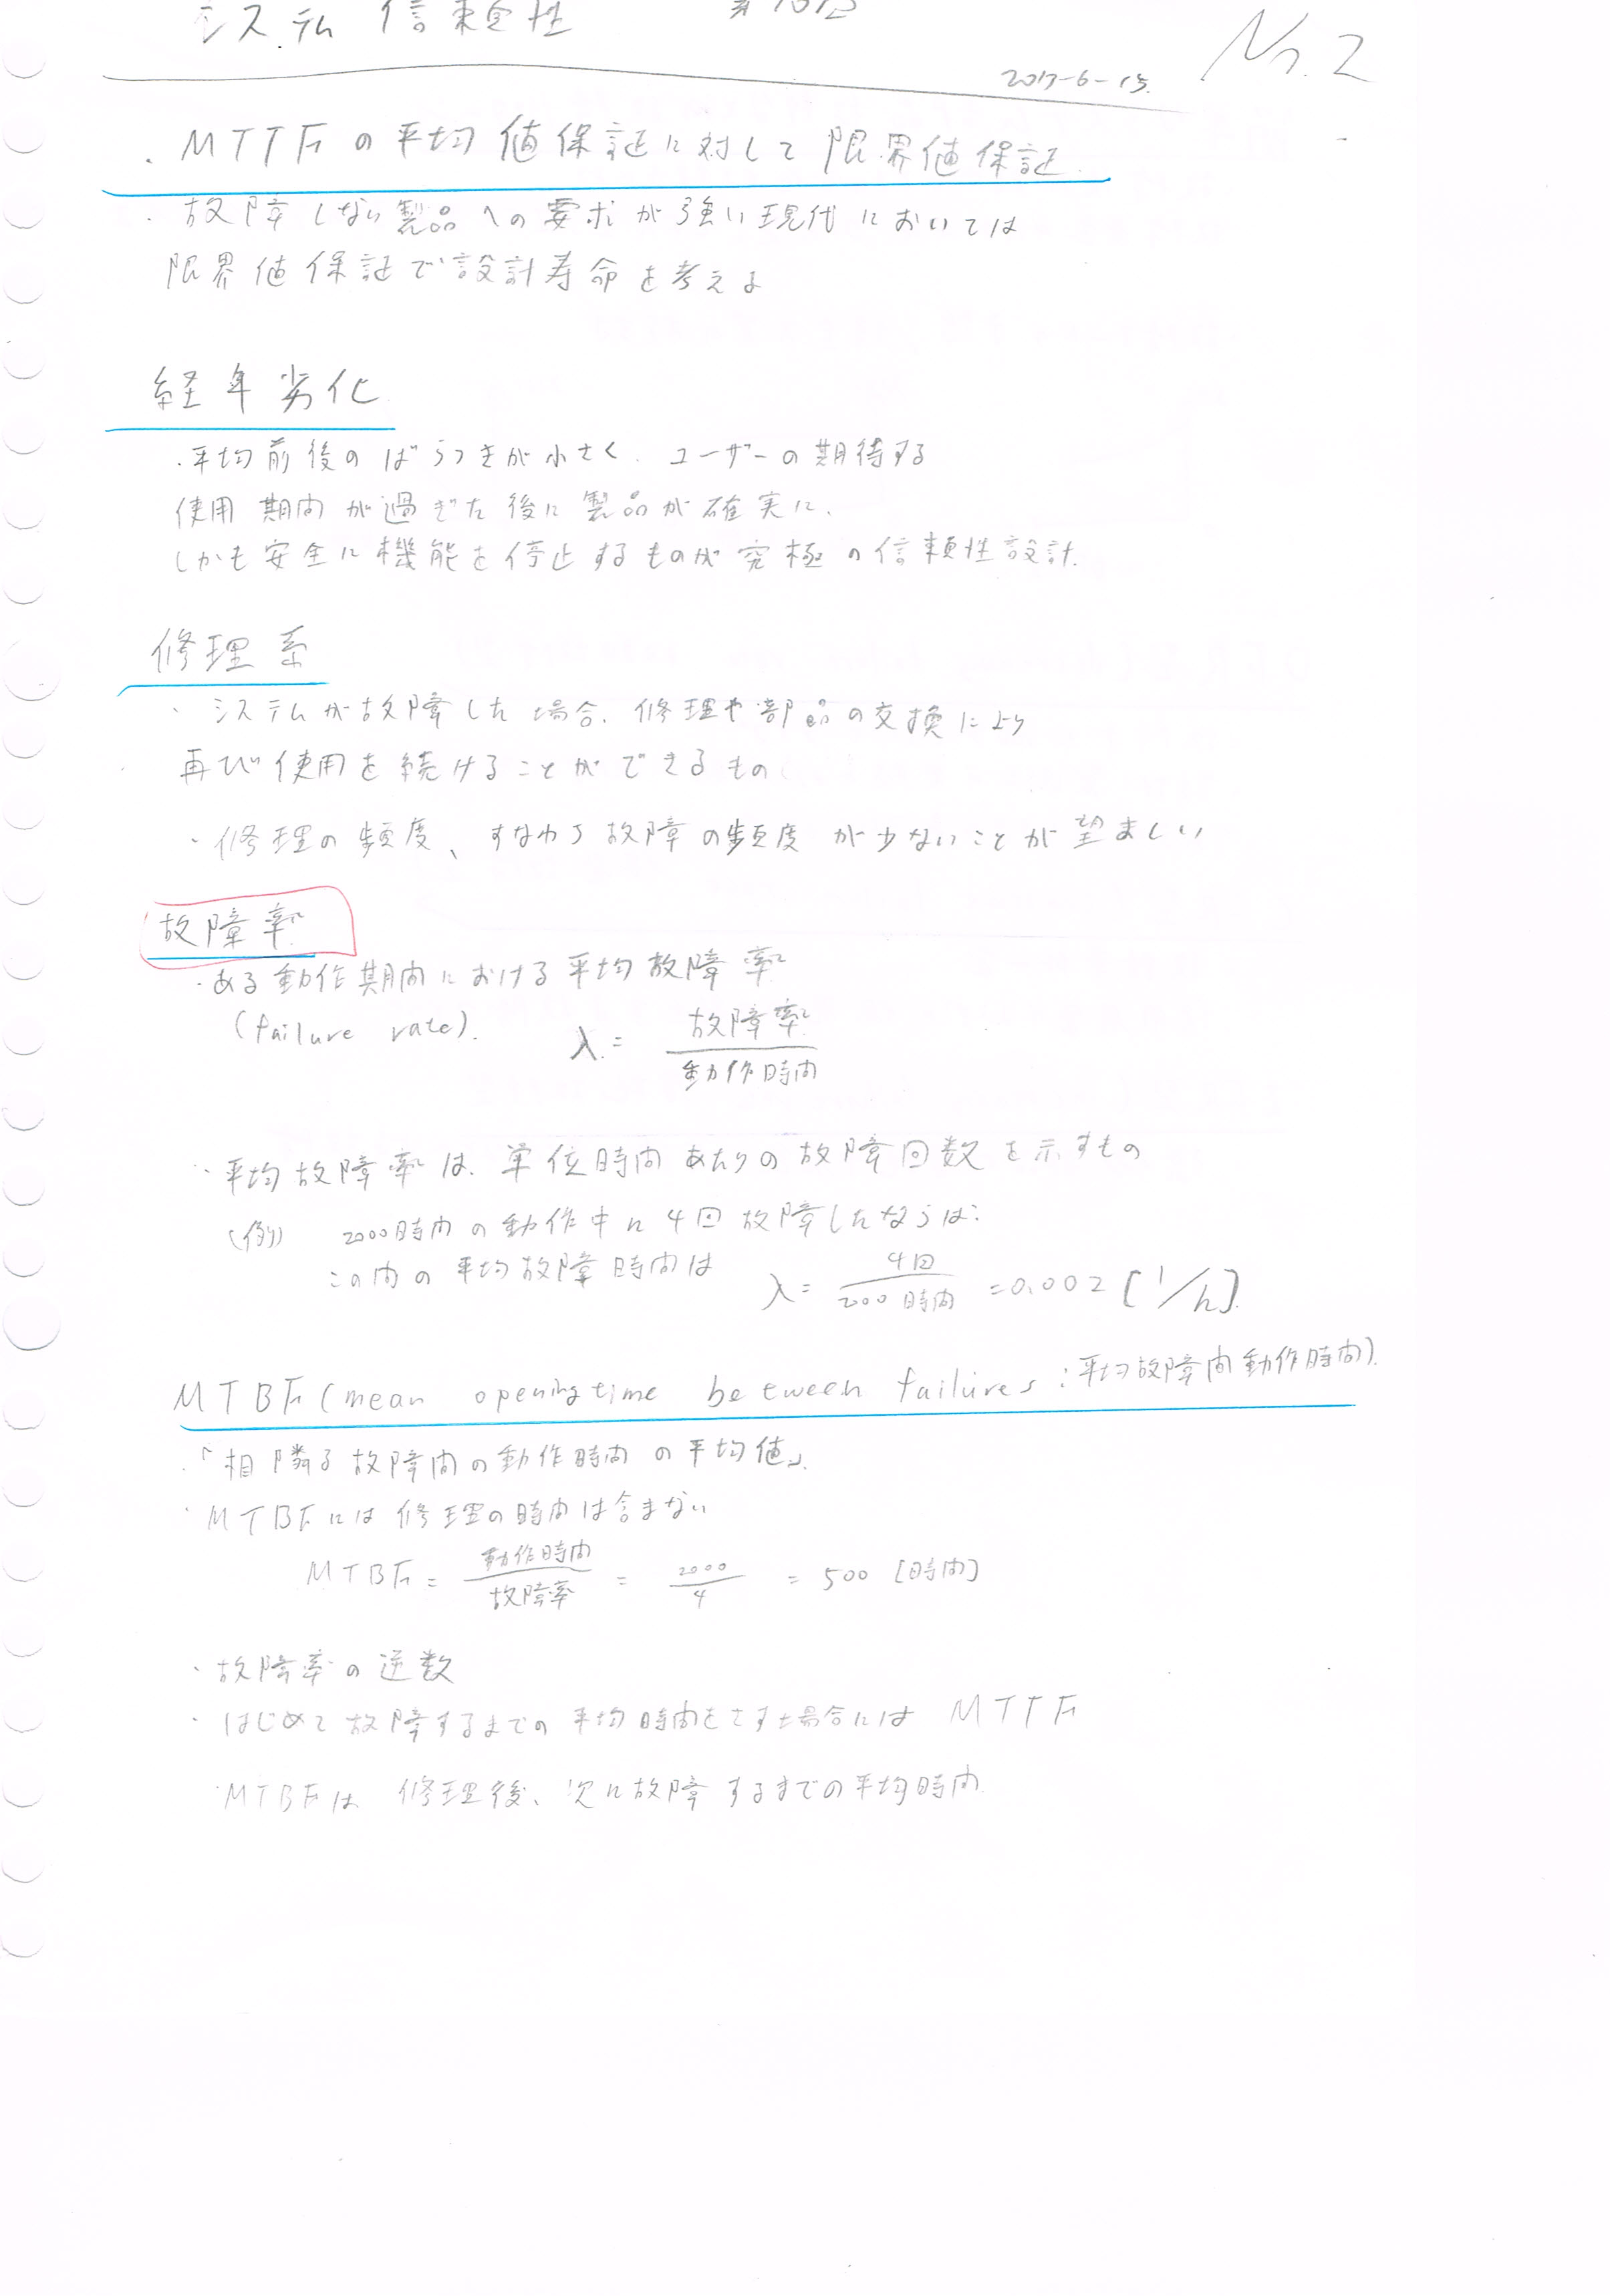 システム 信頼性
No.2
・MTTFの平均値保証に対して限界値保証
・故障しない製品への要求が強い現代においては
限界値保証で設計寿命を考える
経年劣化
・平均前後のばらつきが小さく、ユーザーの期待する
使用期間が過ぎた後に製品が確実に、
しかも安全に機能を停止するものが究極の信頼性設計.
修理系
・システムが故障した場合、修理や部品の交換により
再び使用を続けることができるもの
・修理の頻度、すなわち故障の頻度が少ないことが望ましい
故障率
・ある動作期間における平均故障率
(failure rate). λ = 故障率/動作時間
・平均故障率は、単位時間あたりの故障回数を示すもの
(例) 2000時間の動作中に4回故障したならば:
この内の平均故障時間は λ = 4回/2000時間 = 0.002 [1/h]
MTBF(mean opening time between failures:平均故障間動作時間)
・「相隣る故障間の動作時間の平均値」
・MTBFには修理の時間は含まない
MTBF = 動作時間/故障率 = 2000/4 = 500 [時間]
・故障率の逆数
・はじめて故障するまでの平均時間をさす場合には MTTF
・MTBFは 修理後、次に故障するまでの平均時間